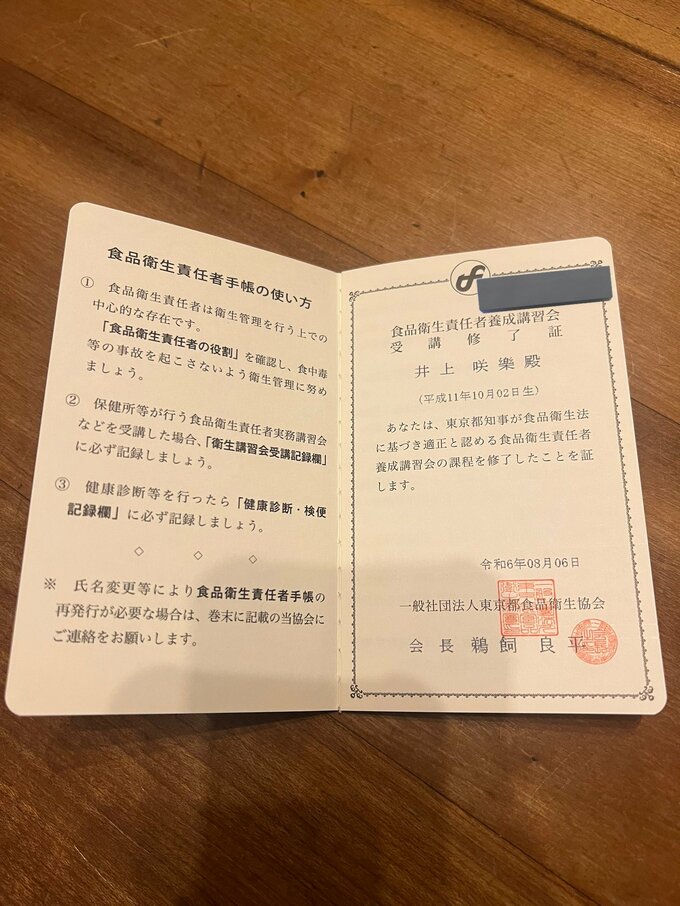 食品衛生責任者手帳の使い方
① 食品衛生責任者は衛生管理を行う上での
中心的な存在です。
「食品衛生責任者の役割」を確認し、食中毒
等の事故を起こさないよう衛生管理に努め
ましょう。
② 保健所等が行う食品衛生責任者実務講習会
などを受講した場合、「衛生講習会受講記録欄」
に必ず記録しましょう。
③ 健康診断等を行ったら「健康診断・検便
記録欄」に必ず記録しましょう。
◇ ◇ ◇
※ 氏名変更等により食品衛生責任者手帳の
再発行が必要な場合は、巻末に記載の当協会に
ご連絡をお願いします。
食品衛生責任者養成講習会
受講修了証
井上 咲樂 殿
(平成11年10月02日生)
あなたは、東京都知事が食品衛生法
に基づき適正と認める食品衛生責任者
養成講習会の課程を修了したことを証
します。
令和6年08月06日
一般社団法人東京都食品衛生協会
会長 鵜飼 良平